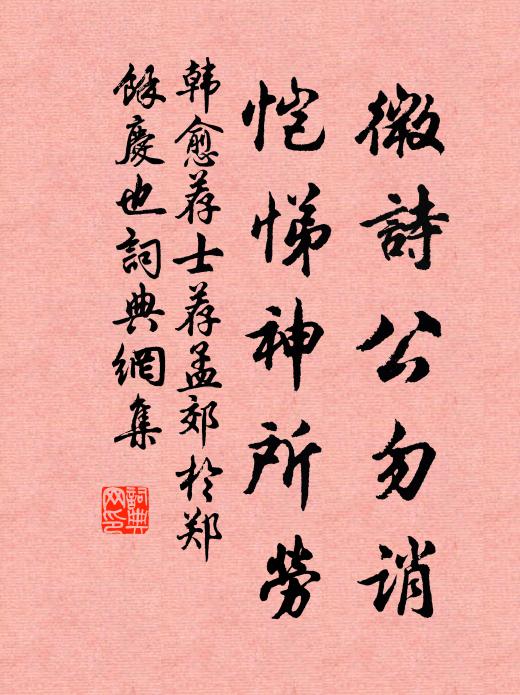 微詩公勿誚
愷悌神所勞
韩愈荐士荐孟郊於郑
餘慶也詞典網集
詞典
网印